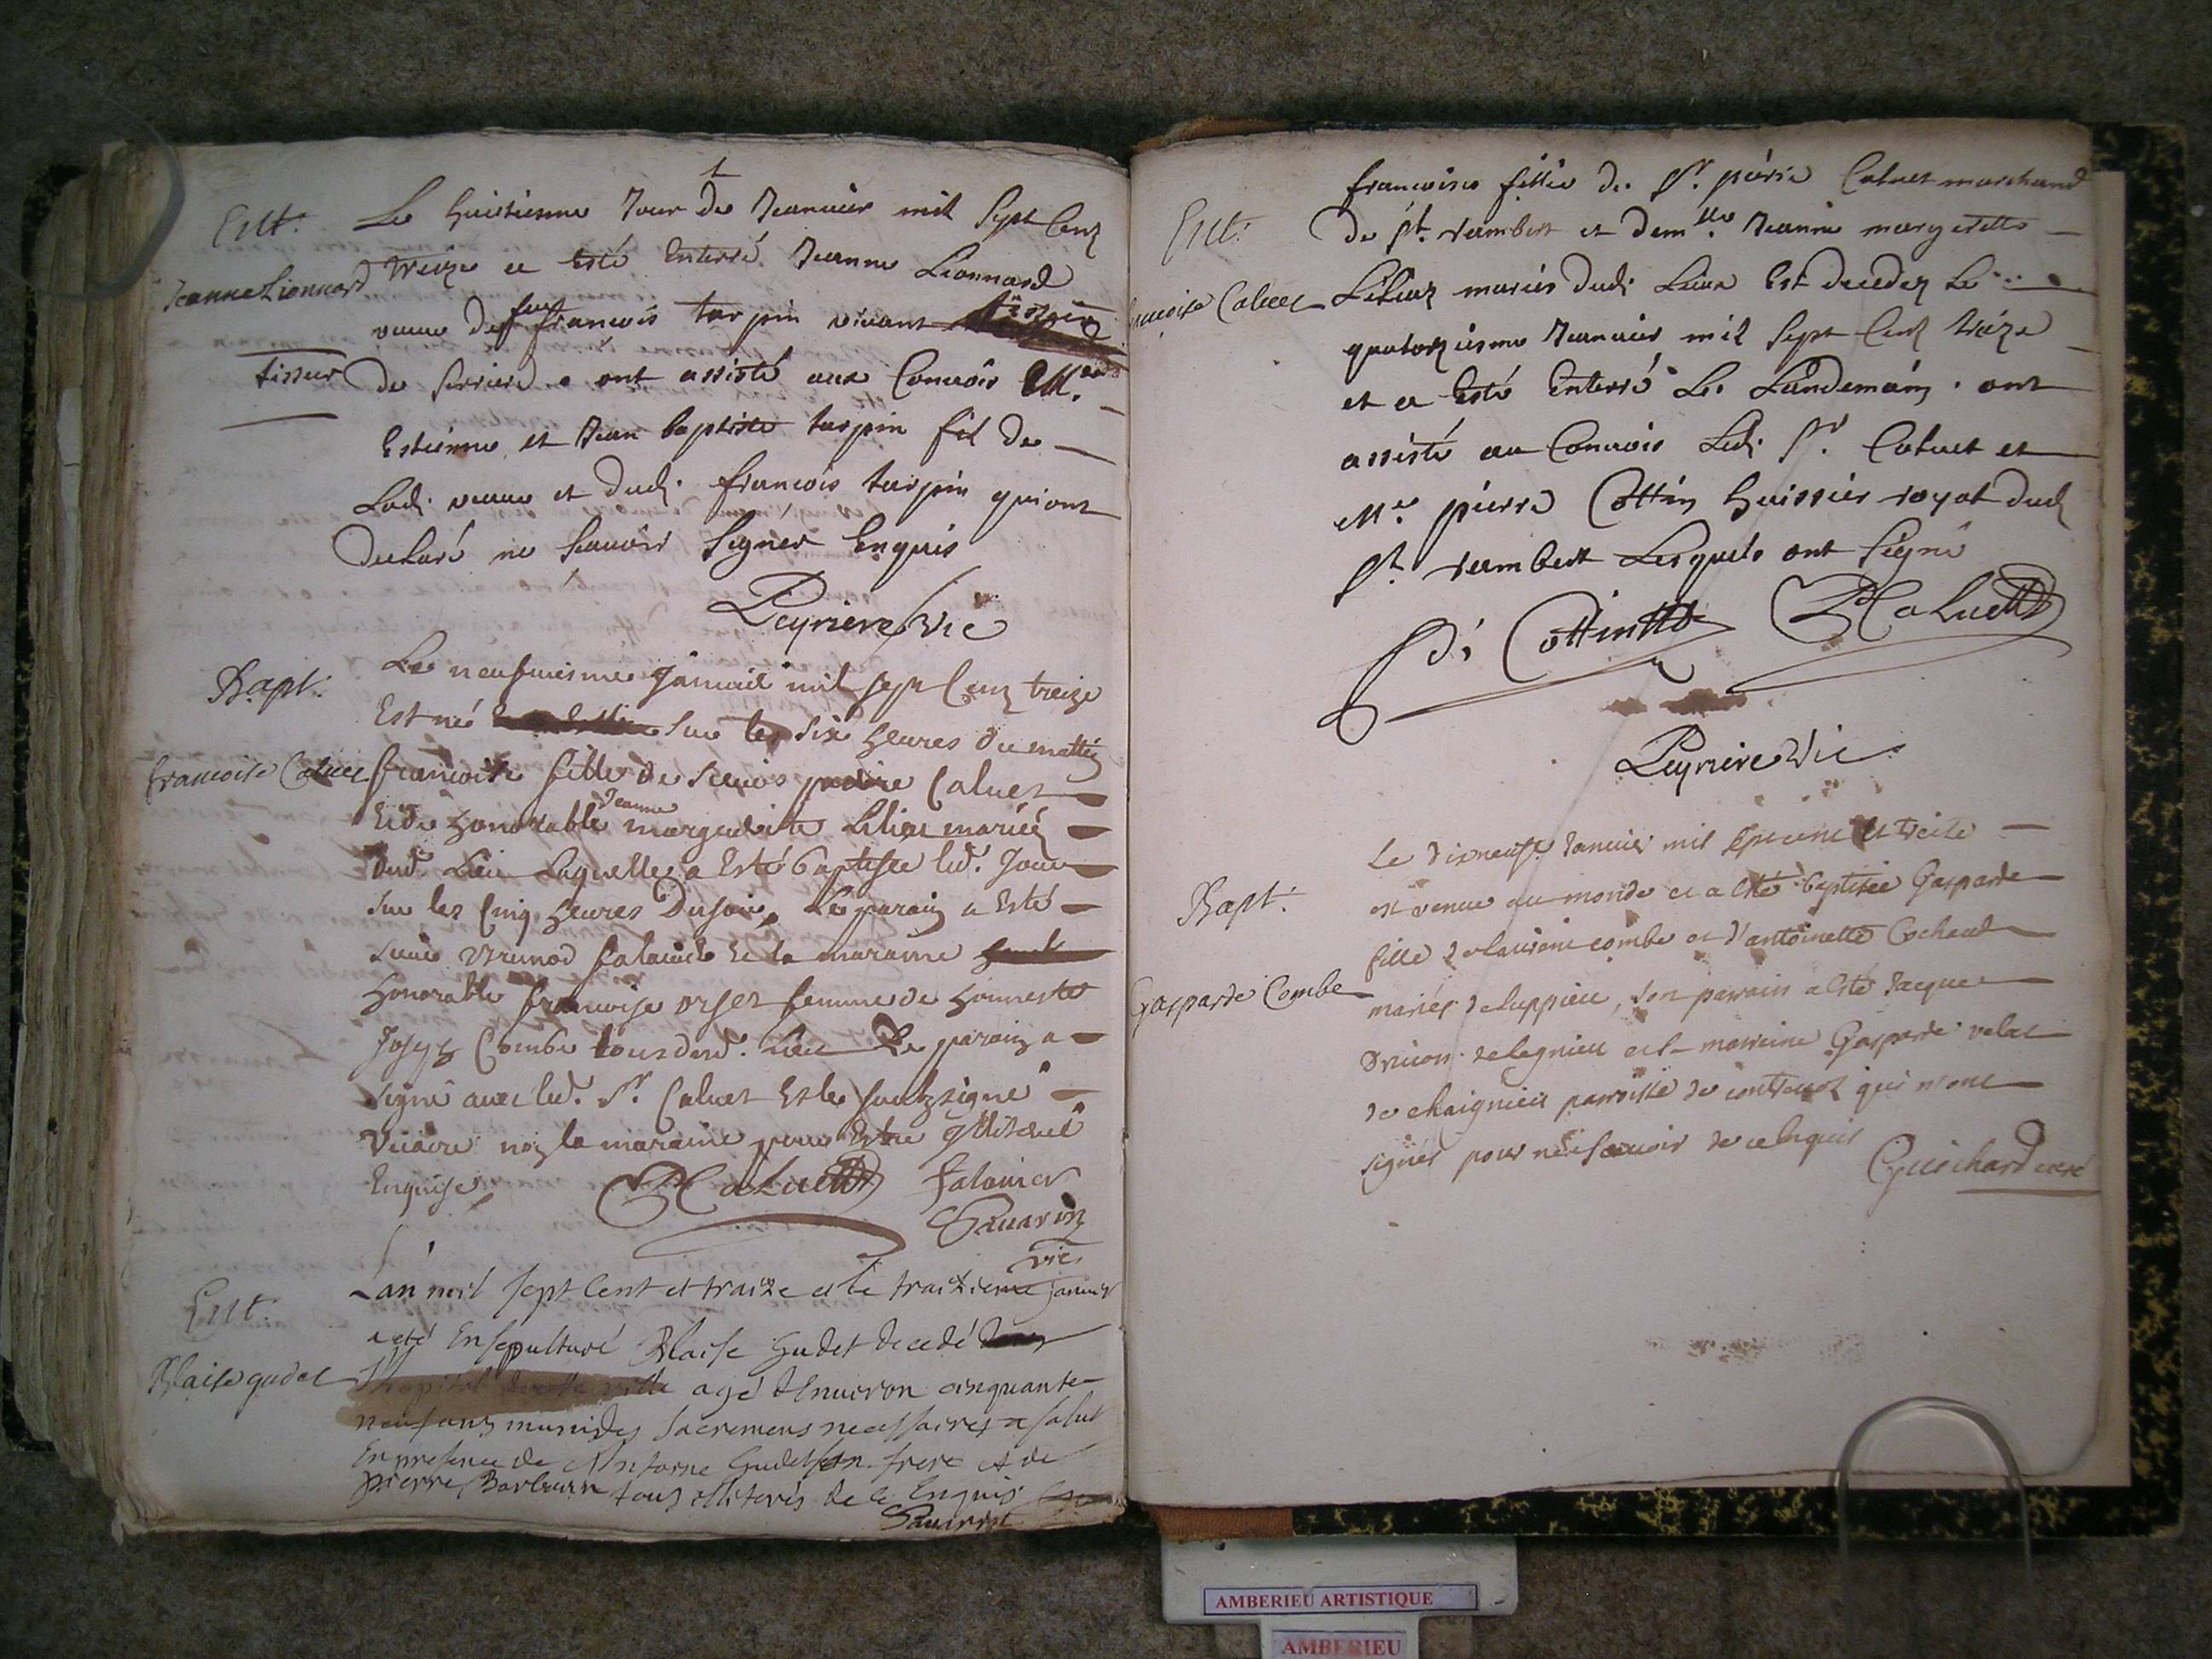 1
Ent.
Le huictiesme Jour de Januier mil Sept Cent
Jeanne Lionnard
treize a esté Enterré Jeanne Leonnard
veuve de feu francois turpin vivant
tisseur
de serriere ont assisté aux Convois
Estienne et Jean baptiste turpin fil de
Ladi. veuve et dudi. francois turpin qui ont
declaré ne scauoir Signer Enquis
Peyriere Vic
Bapt.
Le neufuiesme Januié mil sept Cent treize
Est né sur les six heures du mattin
francoise Caluet
francoise fille de sieur pierre Caluet
Et de honorable Jeanne marguerite mariéz
dud. Lieu Laquelle a Esté baptisée lud. Jour
sur les Cinq heures Dusoir, Le parain a Esté
Et la maraine
honorable francoise orset femme de honneste
Joseph Combe tous dud. Lieu Le parain a
signé avec lud. Sr. Caluet Et le soubzsigné
Vicaire non la maraine pour Estre illiteré
Enquise
P Caluett falauier
Sauarin
vic
Ent.
Lan mil sept Cent et traize et le traizieme janvier
a eté Ensepulturé Blaise Gudet decedé
Blaise gudet
l'hopital de cette ville agé d'Environ cinquante
neuf ans muni des Sacremens necessaires a salut
En presence de Antoine Gudet son frere et de
pierre tous illiterés de ce Enquis
Sauarin
francoise fille de Sr. pierre Caluet marchand
Ent.
de St. rambert et demlle. Jeanne margerette
francoise Caluet
mariés dudi. Lieu Est decedez Le
quatorziesme Januier mil Sept Cent treize
et a Esté Enterré Le Landemain. ont
assisté au Convois Ledi. Sr. Caluet et
Me. pierre Cottin huissier royal dud
St. rambert Lesquels ont Signé
Cottin P Caluett
Peyriere Vic
Le dixneuf Januier mil sept cent et treize
Bapt.
est venue au monde et a esté baptisée Gasparde
fille de laurent combe et d'antoinette Cochaud
Gasparde Combe
mariés de luppieu, son parrain a esté Jacque
druion de lagnieu et la marreine Gasparde velat
de chaignieu parroisse de qui n'ont
signés pour ne scauoir de ce Enquis
Guichard curé
AMBERIEU ARTISTIQUE
AMBERIEU